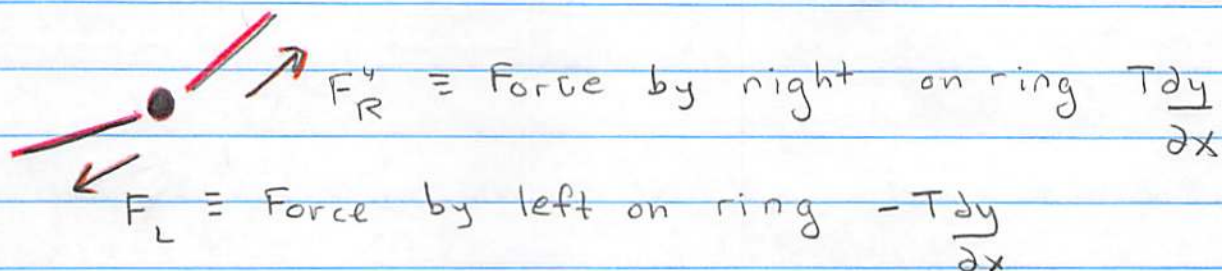 F_R^y ≡ Force by right on ring T∂y/∂x
F_L ≡ Force by left on ring -T∂y/∂x